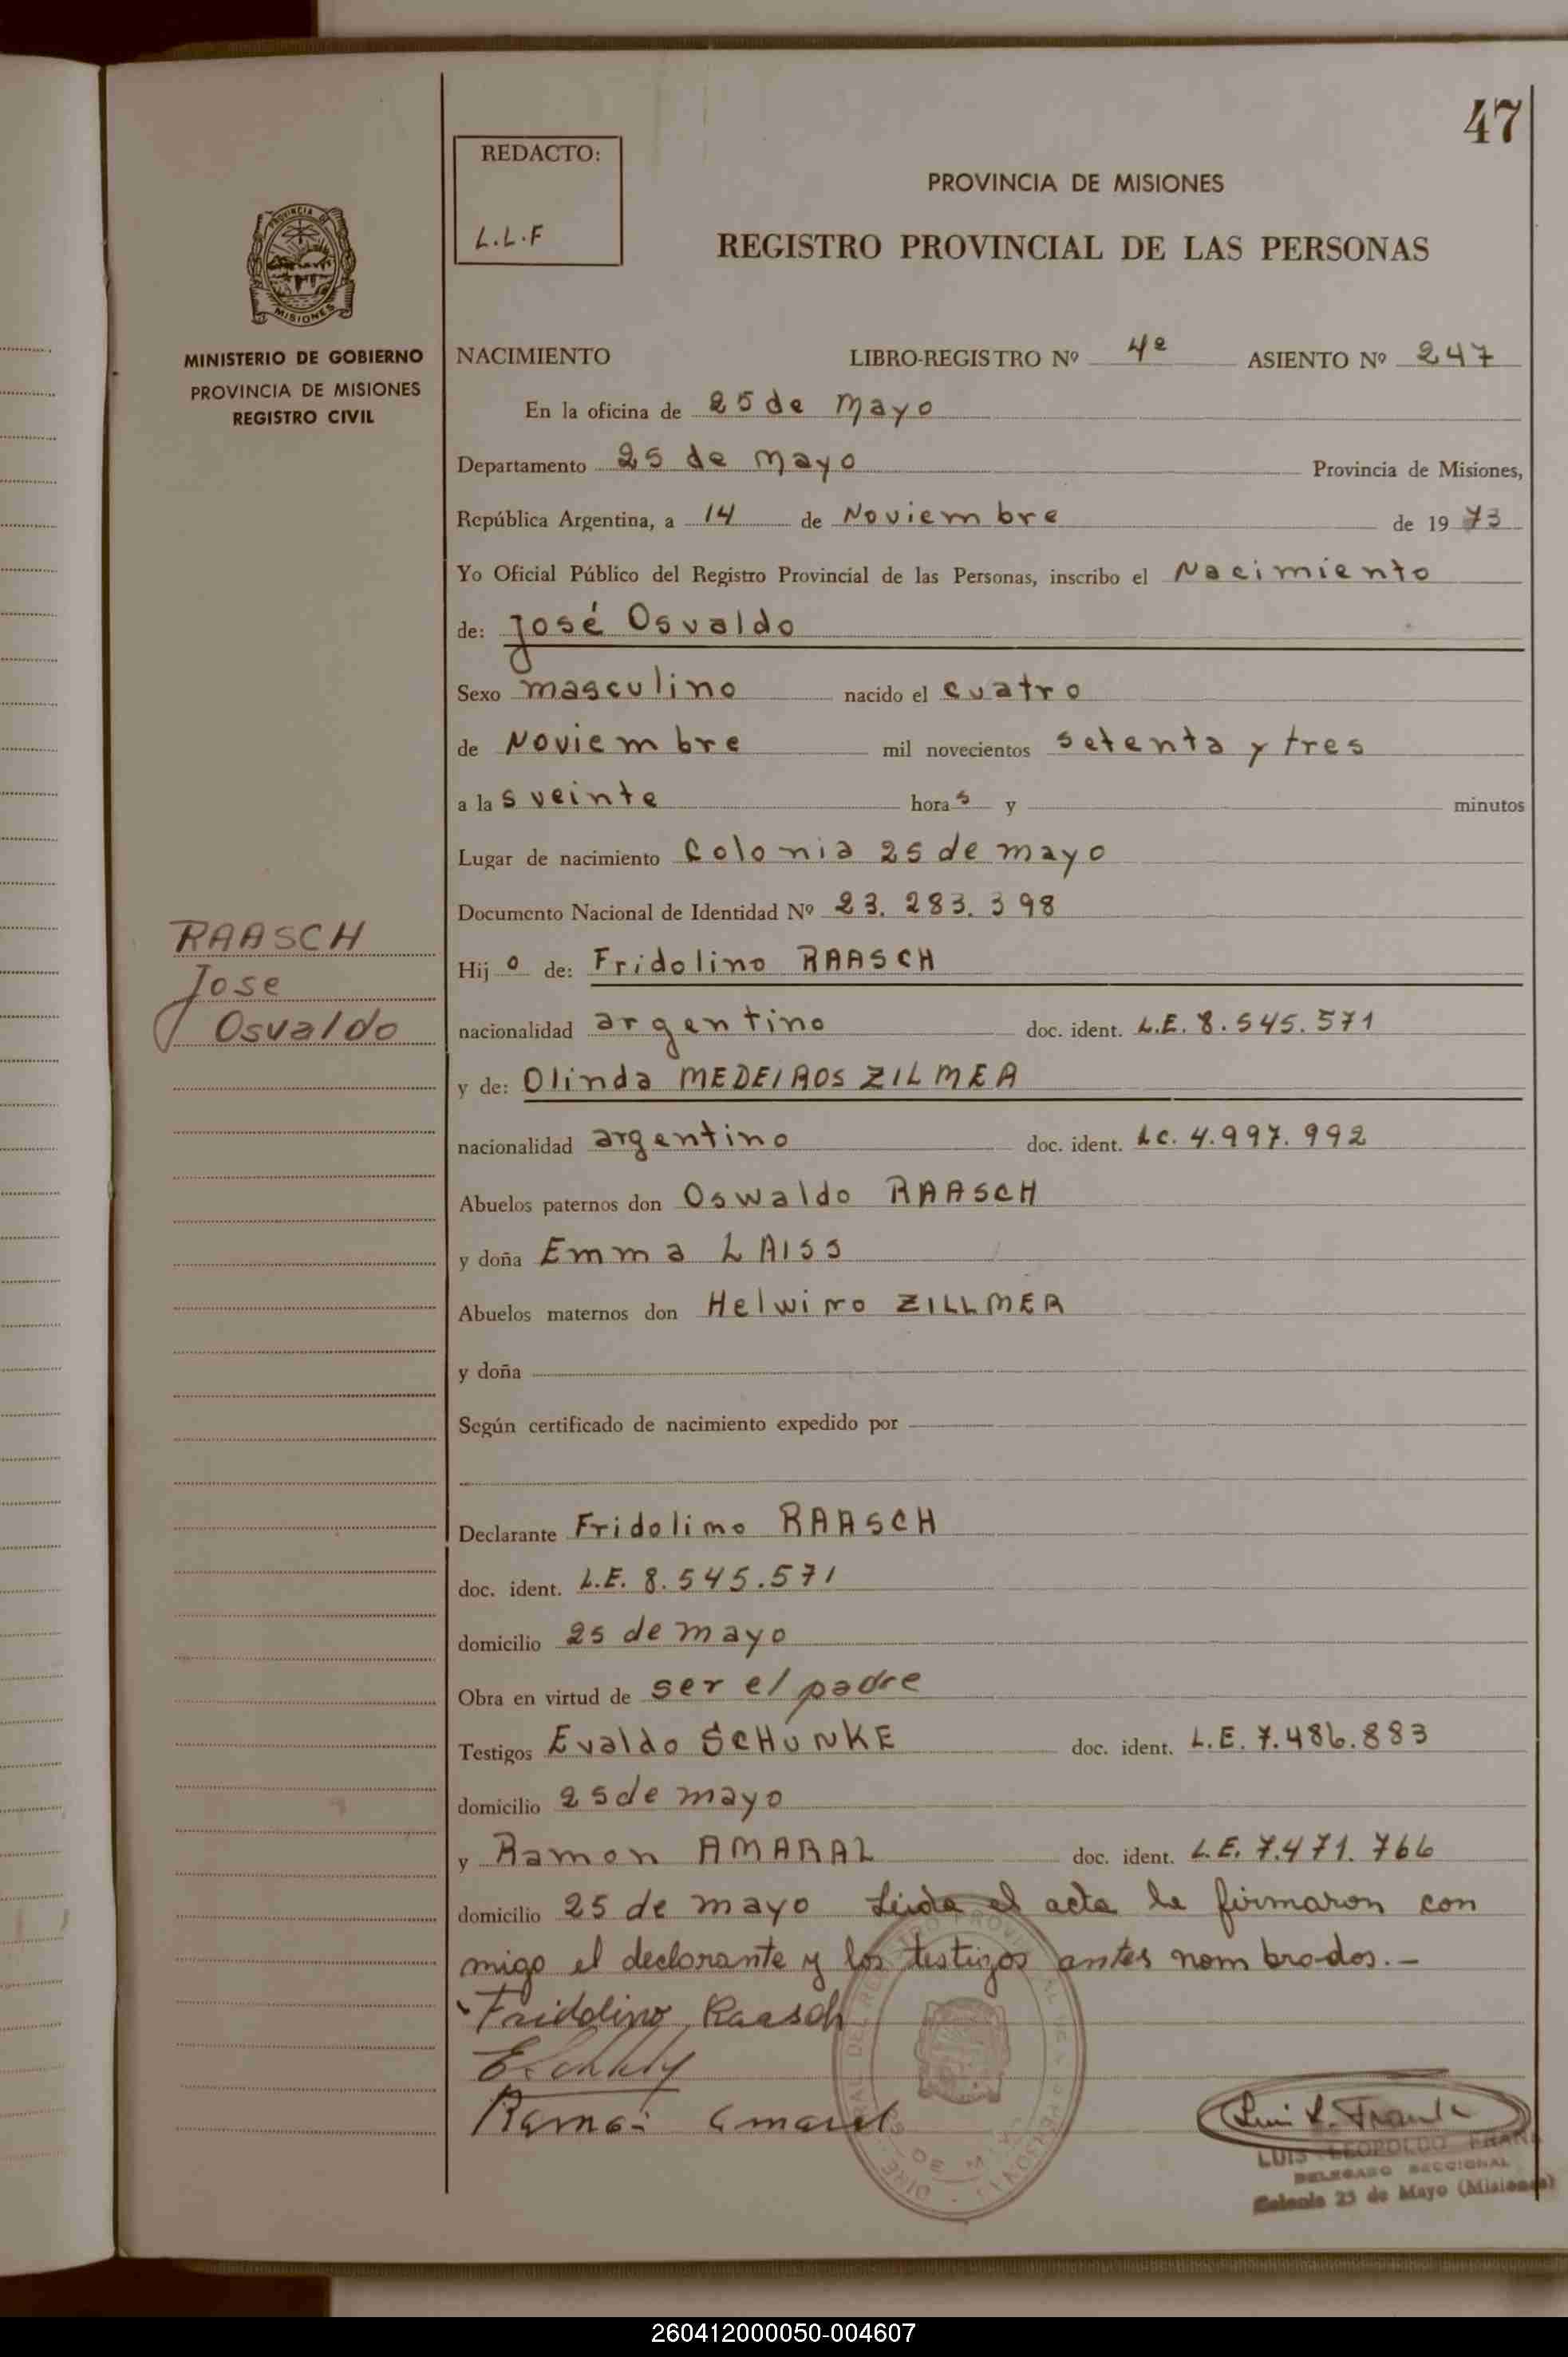 47
REDACTO:
L.L.F
PROVINCIA DE MISIONES
REGISTRO PROVINCIAL DE LAS PERSONAS
PROVINCIA DE
MISIONES
MINISTERIO DE GOBIERNO
PROVINCIA DE MISIONES
REGISTRO CIVIL
NACIMIENTO LIBRO-REGISTRO Nº 4º ASIENTO Nº 247
En la oficina de 25 de Mayo
Departamento 25 de Mayo Provincia de Misiones,
República Argentina, a 14 de Noviembre de 1973
Yo Oficial Público del Registro Provincial de las Personas, inscribo el Nacimiento
de: José Osvaldo
Sexo masculino nacido el cuatro
de Noviembre mil novecientos setenta y tres
a las veinte horas y minutos
Lugar de nacimiento Colonia 25 de mayo
Documento Nacional de Identidad Nº 23.283.398
RAASCH
Jose
Osvaldo
Hijo de: Fridolino RAASCH
nacionalidad argentino doc. ident. L.E. 8.545.571
y de: Olinda MEDEIROS ZILMER
nacionalidad argentino doc. ident. L.C. 4.997.992
Abuelos paternos don Oswaldo RAASCH
y doña Emma LAISS
Abuelos maternos don Helwino ZILLMER
y doña
Según certificado de nacimiento expedido por
Declarante Fridolino RAASCH
doc. ident. L.E. 8.545.571
domicilio 25 de mayo
Obra en virtud de ser el padre
Testigos Evaldo SCHUNKE doc. ident. L.E. 7.486.883
domicilio 25 de mayo
y Ramon AMARAL doc. ident. L.E. 7.471.766
domicilio 25 de mayo Leida el acta la firmaron con
migo el declarante y los testigos antes nombrados.-
Fridolino Raasch
Ramon Amaral
Luis L. Frank
LUIS LEOPOLDO FRANK
DELEGADO SECCIONAL
Colonia 25 de Mayo (Misiones)
260412000050-004607